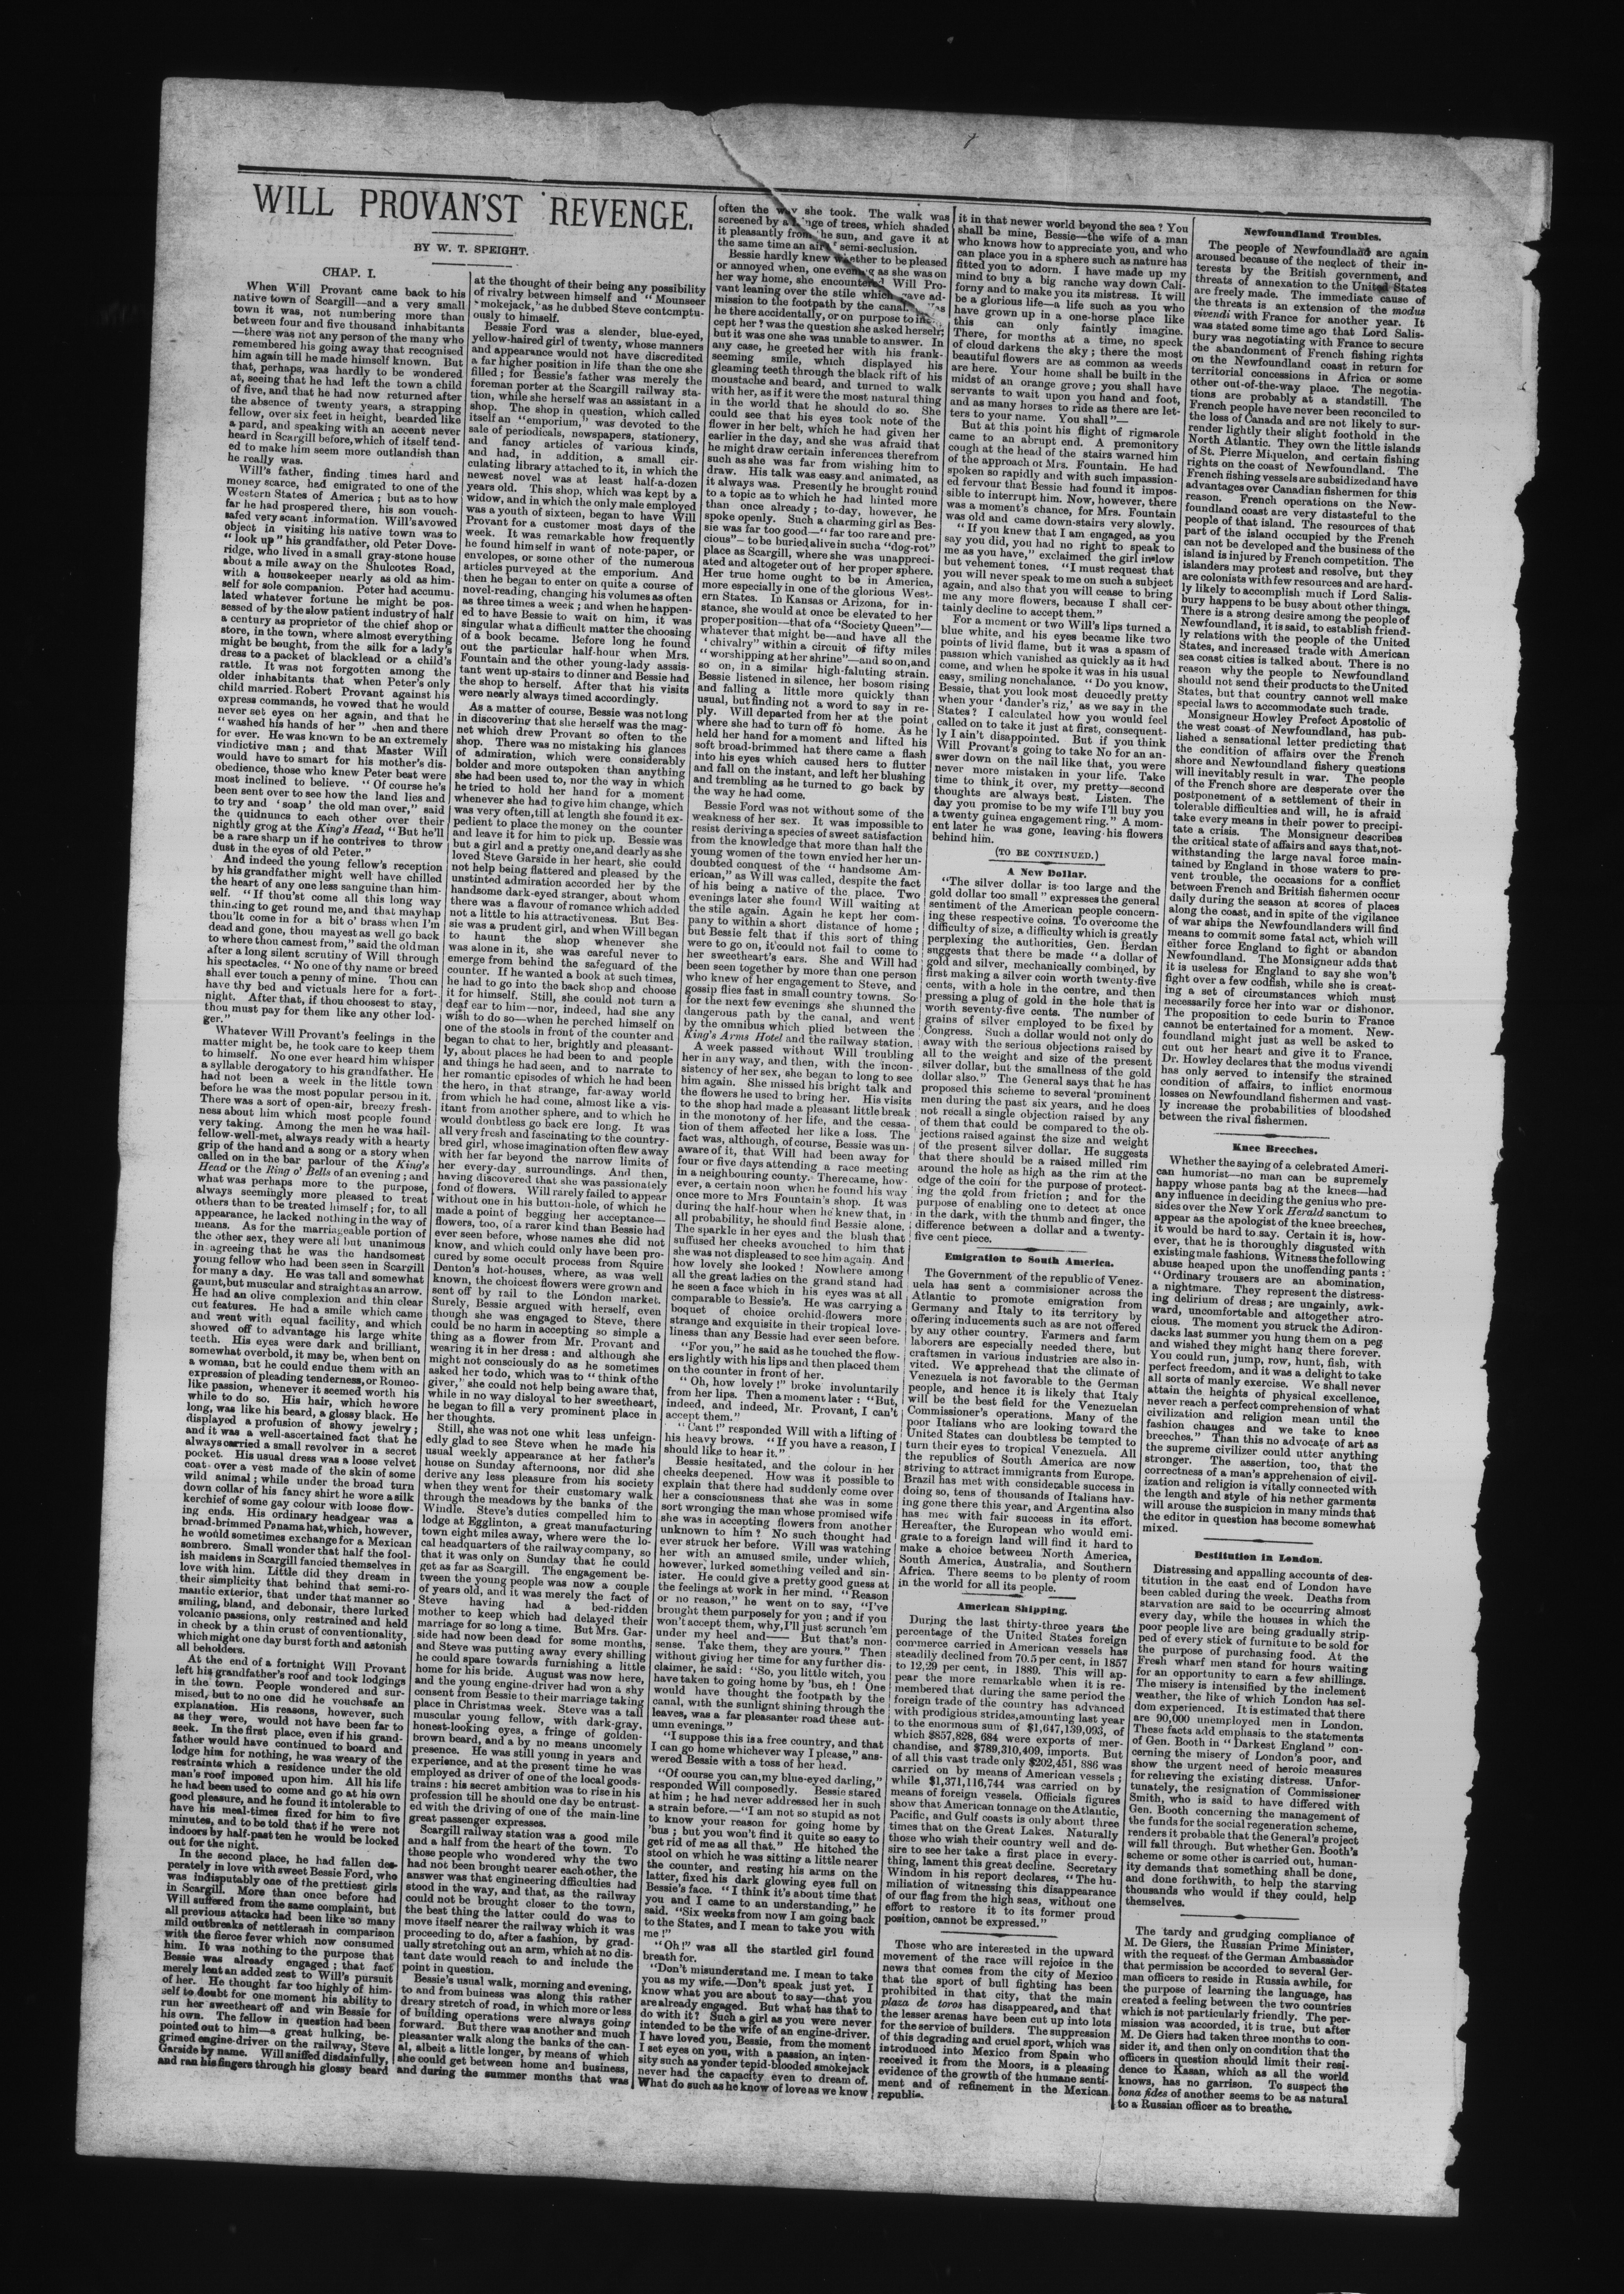 WILL PROVAN'ST REVENGE.
BY W. T. SPEIGHT.
CHAP. I.
When Will Provant came back to his
native town of Scargill—and a very small
town it was, not numbering more than
between four and five thousand inhabitants
—there was not any person of the many who
remembered his going away that recognised
him again till he made himself known. But
that, perhaps, was hardly to be wondered
at, seeing that he had left the town a child
of five, and that he had now returned after
the absence of twenty years, a strapping
fellow, over six feet in height, bearded like
a pard, and speaking with an accent never
heard in Scargill before, which of itself tend-
ed to make him seem more outlandish than
he really was.
Will's father, finding times hard and
money scarce, had emigrated to one of the
Western States of America; but as to how
far he had prospered there, his son vouch-
safed very scant information. Will's avowed
object in visiting his native town was to
"look up" his grandfather, old Peter Dove-
ridge, who lived in a small gray-stone house
about a mile away on the Shulcotes Road,
with a housekeeper nearly as old as him-
self for sole companion. Peter had accumu-
lated whatever fortune he might be pos-
sessed of by the slow patient industry of half
a century as proprietor of the chief shop or
store, in the town, where almost everything
might be bought, from the silk for a lady's
dress to a packet of blacklead or a child's
rattle. It was not forgotten among the
older inhabitants that when Peter's only
child married Robert Provant against his
express commands, he vowed that he would
never set eyes on her again, and that he
"washed his hands of her" then and there
for ever. He was known to be an extremely
vindictive man; and that Master Will
would have to smart for his mother's dis-
obedience, those who knew Peter best were
most inclined to believe. "Of course he's
been sent over to see how the land lies and
to try and 'soap' the old man over," said
the quidnuncs to each other over their
nightly grog at the King's Head, "But he'll
be a rare sharp un if he contrives to throw
dust in the eyes of old Peter."
And indeed the young fellow's reception
by his grandfather might well have chilled
the heart of any one less sanguine than him-
self. "If thou'st come all this long way
thinking to get round me, and that mayhap
thou'lt come in for a bit o' brass when I'm
dead and gone, thou mayest as well go back
to where thou camest from," said the old man
after a long silent scrutiny of Will through
his spectacles. "No one of thy name or breed
shall ever touch a penny of mine. Thou can
have thy bed and victuals here for a fort-
night. After that, if thou choosest to stay,
thou must pay for them like any other lod-
ger."
Whatever Will Provant's feelings in the
matter might be, he took care to keep them
to himself. No one ever heard him whisper
a syllable derogatory to his grandfather. He
had not been a week in the little town
before he was the most popular person in it.
There was a sort of open-air, breezy fresh-
ness about him which most people found
very taking. Among the men he was hail-
fellow-well-met, always ready with a hearty
grip of the hand and a song or a story when
called on in the bar parlour of the King's
Head or the Ring o' Bells of an evening; and
what was perhaps more to the purpose,
always seemingly more pleased to treat
others than to be treated himself; for, to all
appearance, he lacked nothing in the way of
means. As for the marriageable portion of
the other sex, they were all but unanimous
in agreeing that he was the handsomest
young fellow who had been seen in Scargill
for many a day. He was tall and somewhat
gaunt, but muscular and straight as an arrow.
He had an olive complexion and thin clear
cut features. He had a smile which came
and went with equal facility, and which
showed off to advantage his large white
teeth. His eyes were dark and brilliant,
somewhat overbold, it may be, when bent on
a woman, but he could endue them with an
expression of pleading tenderness, or Romeo-
like passion, whenever it seemed worth his
while to do so. His hair, which he wore
long, was like his beard, a glossy black. He
displayed a profusion of showy jewelry;
and it was a well-ascertained fact that he
always carried a small revolver in a secret
pocket. His usual dress was a loose velvet
coat over a vest made of the skin of some
wild animal; while under the broad turn
down collar of his fancy shirt he wore a silk
kerchief of some gay colour with loose flow-
ing ends. His ordinary headgear was a
broad-brimmed Panama hat, which, however,
he would sometimes exchange for a Mexican
sombrero. Small wonder that half the fool-
ish maidens in Scargill fancied themselves in
love with him. Little did they dream in
their simplicity that behind that semi-ro-
mantic exterior, that under that manner so
smiling, bland, and debonair, there lurked
volcanic passions, only restrained and held
in check by a thin crust of conventionality,
which might one day burst forth and astonish
all beholders.
At the end of a fortnight Will Provant
left his grandfather's roof and took lodgings
in the town. People wondered and sur-
mised, but to no one did he vouchsafe an
explanation. His reasons, however, such
as they were, would not have been far to
seek. In the first place, even if his grand-
father would have continued to board and
lodge him for nothing, he was weary of the
restraints which a residence under the old
man's roof imposed upon him. All his life
he had been used to come and go at his own
good pleasure, and he found it intolerable to
have his meal-times fixed for him to five
minutes, and to be told that if he were not
indoors by half-past ten he would be locked
out for the night.
In the second place, he had fallen des-
perately in love with sweet Bessie Ford, who
was indisputably one of the prettiest girls
in Scargill. More than once before had
Will suffered from the same complaint, but
all previous attacks had been like so many
mild outbreaks of nettlerash in comparison
with the fierce fever which now consumed
him. It was nothing to the purpose that
Bessie was already engaged; that fact
merely lent an added zest to Will's pursuit
of her. He thought far too highly of him-
self to doubt for one moment his ability to
run her sweetheart off and win Bessie for
his own. The fellow in question had been
pointed out to him—a great hulking, be-
grimed engine-driver on the railway, Steve
Garside by name. Will sniffed disdainfully,
and ran his fingers through his glossy beard
at the thought of their being any possibility
of rivalry between himself and "Mounseer
Smokejack," as he dubbed Steve contemptu-
ously to himself.
Bessie Ford was a slender, blue-eyed,
yellow-haired girl of twenty, whose manners
and appearance would not have discredited
a far higher position in life than the one she
filled; for Bessie's father was merely the
foreman porter at the Scargill railway sta-
tion, while she herself was an assistant in a
shop. The shop in question, which called
itself an "emporium," was devoted to the
sale of periodicals, newspapers, stationery,
and fancy articles of various kinds,
and had, in addition, a small cir-
culating library attached to it, in which the
newest novel was at least half-a-dozen
years old. This shop, which was kept by a
widow, and in which the only male employed
was a youth of sixteen, began to have Will
Provant for a customer most days of the
week. It was remarkable how frequently
he found himself in want of note-paper, or
envelopes, or some other of the numerous
articles purveyed at the emporium. And
then he began to enter on quite a course of
novel-reading, changing his volumes as often
as three times a week; and when he happen-
ed to have Bessie to wait on him, it was
singular what a difficult matter the choosing
of a book became. Before long he found
out the particular half-hour when Mrs.
Fountain and the other young-lady asssis-
tant went up-stairs to dinner and Bessie had
the shop to herself. After that his visits
were nearly always timed accordingly.
As a matter of course, Bessie was not long
in discovering that she herself was the mag-
net which drew Provant so often to the
shop. There was no mistaking his glances
of admiration, which were considerably
bolder and more outspoken than anything
she had been used to, nor the way in which
he tried to hold her hand for a moment
whenever she had to give him change, which
was very often, till at length she found it ex-
pedient to place the money on the counter
and leave it for him to pick up. Bessie was
but a girl and a pretty one, and dearly as she
loved Steve Garside in her heart, she could
not help being flattered and pleased by the
unstinted admiration accorded her by the
handsome dark-eyed stranger, about whom
there was a flavour of romance which added
not a little to his attractiveness. But Bes-
sie was a prudent girl, and when Will began
to haunt the shop whenever she
was alone in it, she was careful never to
emerge from behind the safeguard of the
counter. If he wanted a book at such times,
he had to go into the back shop and choose
it for himself. Still, she could not turn a
deaf ear to him—nor, indeed, had she any
wish to do so—when he perched himself on
one of the stools in front of the counter and
began to chat to her, brightly and pleasant-
ly, about places he had been to and people
and things he had seen, and to narrate to
her romantic episodes of which he had been
the hero, in that strange, far-away world
from which he had come, almost like a vis-
itant from another sphere, and to which he
would doubtless go back ere long. It was
all very fresh and fascinating to the country-
bred girl, whose imagination often flew away
with her far beyond the narrow limits of
her every-day surroundings. And then,
having discovered that she was passionately
fond of flowers. Will rarely failed to appear
without one in his button-hole, of which he
made a point of begging her acceptance—
flowers, too, of a rarer kind than Bessie had
ever seen before, whose names she did not
know, and which could only have been pro-
cured by some occult process from Squire
Denton's hot-houses, where, as was well
known, the choicest flowers were grown and
sent off by rail to the London market.
Surely, Bessie argued with herself, even
though she was engaged to Steve, there
could be no harm in accepting so simple a
thing as a flower from Mr. Provant and
wearing it in her dress: and although she
might not consciously do as he sometimes
asked her to do, which was to "think of the
giver," she could not help being aware that,
while in no way disloyal to her sweetheart,
he began to fill a very prominent place in
her thoughts.
Still, she was not one whit less unfeign-
edly glad to see Steve when he made his
usual weekly appearance at her father's
house on Sunday afternoons, nor did she
derive any less pleasure from his society
when they went for their customary walk
through the meadows by the banks of the
Windle. Steve's duties compelled him to
lodge at Egglinton, a great manufacturing
town eight miles away, where were the lo-
cal headquarters of the railway company, so
that it was only on Sunday that he could
get as far as Scargill. The engagement be-
tween the young people was now a couple
of years old, and it was merely the fact of
Steve having had a bed-ridden
mother to keep which had delayed their
marriage for so long a time. But Mrs. Gar-
side had now been dead for some months,
and Steve was putting away every shilling
he could spare towards furnishing a little
home for his bride. August was now here,
and the young engine-driver had won a shy
consent from Bessie to their marriage taking
place in Christmas week. Steve was a tall
muscular young fellow, with dark-gray,
honest-looking eyes, a fringe of golden-
brown beard, and a by no means uncomely
presence. He was still young in years and
experience, and at the present time he was
employed as driver of one of the local goods-
trains: his secret ambition was to rise in his
profession till he should one day be entrust-
ed with the driving of one of the main-line
great passenger expresses.
Scargill railway station was a good mile
and a half from the heart of the town. To
those people who wondered why the two
had not been brought nearer each other, the
answer was that engineering difficulties had
stood in the way, and that, as the railway
could not be brought closer to the town,
the best thing the latter could do was to
move itself nearer the railway which it was
proceeding to do, after a fashion, by grad-
ually stretching out an arm, which at no dis-
tant date would reach to and include the
point in question.
Bessie's usual walk, morning and evening,
to and from buiness was along this rather
dreary stretch of road, in which more or less
of building operations were always going
forward. But there was another and much
pleasanter walk along the banks of the can-
al, albeit a little longer, by means of which
she could get between home and business,
and during the summer months that was
often the way she took. The walk was
screened by a of trees, which shaded
it pleasantly from the sun, and gave it at
the same time an air semi-seclusion.
Bessie hardly knew whether to be pleased
or annoyed when, one evening as she was on
her way home, she encountered Will Pro-
vant leaning over the stile which gave ad-
mission to the footpath by the canal. Was
he there accidentally, or on purpose to
cept her? was the question she asked herself;
but it was one she was unable to answer. In
any case, he greeted her with his frank-
seeming smile, which displayed his
gleaming teeth through the black rift of his
moustache and beard, and turned to walk
with her, as if it were the most natural thing
in the world that he should do so. She
could see that his eyes took note of the
flower in her belt, which he had given her
earlier in the day, and she was afraid that
he might draw certain inferences therefrom
such as she was far from wishing him to
draw. His talk was easy and animated, as
it always was. Presently he brought round
to a topic as to which he had hinted more
than once already; to-day, however, he
spoke openly. Such a charming girl as Bes-
sie was far too good—"far too rare and pre-
cious"—to be buried alive in such a "dog-rot"
place as Scargill, where she was unappreci-
ated and altogeter out of her proper sphere.
Her true home ought to be in America,
more especially in one of the glorious West-
ern States. In Kansas or Arizona, for in-
stance, she would at once be elevated to her
proper position—that of a "Society Queen"—
whatever that might be—and have all the
'chivalry" within a circuit of fifty miles
"worshipping at her shrine"—and so on, and
so on, in a similar high-faluting strain.
Bessie listened in silence, her bosom rising
and falling a little more quickly than
usual, but finding not a word to say in re-
ply. Will departed from her at the point
where she had to turn off fo home. As he
held her hand for a moment and lifted his
soft broad-brimmed hat there came a flash
into his eyes which caused hers to flutter
and fall on the instant, and left her blushing
and trembling as he turned to go back by
the way he had come.
Bessie Ford was not without some of the
weakness of her sex. It was impossible to
resist deriving a species of sweet satisfaction
from the knowledge that more than half the
young women of the town envied her her un-
doubted conquest of the "handsome Am-
erican," as Will was called, despite the fact
of his being a native of the place. Two
evenings later she found Will waiting at
the stile again. Again he kept her com-
pany to within a short distance of home;
but Bessie felt that if this sort of thing
were to go on, it could not fail to come to
her sweetheart's ears. She and Will had
been seen together by more than one person
who knew of her engagement to Steve, and
gossip flies fast in small country towns. So
for the next few evenings she shunned the
dangerous path by the canal, and went
by the omnibus which plied between the
King's Arms Hotel and the railway station.
A week passed without Will troubling
her in any way, and then, with the incon-
sistency of her sex, she began to long to see
him again. She missed his bright talk and
the flowers he used to bring her. His visits
to the shop had made a pleasant little break
in the monotony of her life, and the cessa-
tion of them affected her like a loss. The
fact was, although, of course, Bessie was un-
aware of it, that Will had been away for
four or five days attending a race meeting
in a neighbouring county. There came, how-
ever, a certain noon when he found his way
once more to Mrs Fountain's shop. It was
during the half-hour when he knew that, in
all probability, he should find Bessie alone.
The sparkle in her eyes and the blush that
suffused her cheeks avouched to him that
she was not displeased to see him again. And
how lovely she looked! Nowhere among
all the great ladies on the grand stand had
he seen a face which in his eyes was at all
comparable to Bessie's. He was carrying a
boquet of choice orchid-flowers more
strange and exquisite in their tropical love-
liness than any Bessie had ever seen before.
"For you," he said as he touched the flow-
ers lightly with his lips and then placed them
on the counter in front of her.
"Oh, how lovely!" broke involuntarily
from her lips. Then a moment later: "But,
indeed, and indeed, Mr. Provant, I can't
accept them."
"Cant!" responded Will with a lifting of
his heavy brows. "If you have a reason, I
should like to hear it."
Bessie hesitated, and the colour in her
cheeks deepened. How was it possible to
explain that there had suddenly come over
her a consciousness that she was in some
sort wronging the man whose promised wife
she was in accepting flowers from another
unknown to him? No such thought had
ever struck her before. Will was watching
her with an amused smile, under which,
however, lurked something veiled and sin-
ister. He could give a pretty good guess at
the feelings at work in her mind. "Reason
or no reason," he went on to say, "I've
brought them purposely for you; and if you
won't accept them, why, I'll just scrunch 'em
under my heel and—— But that's non-
sense. Take them, they are yours." Then
without giving her time for any further dis-
claimer, he said: "So, you little witch, you
have taken to going home by 'bus, eh! One
would have thought the footpath by the
canal, with the sunlight shining through the
leaves, was a far pleasanter road these aut-
umn evenings."
"I suppose this is a free country, and that
I can go home whichever way I please," ans-
wered Bessie with a toss of her head.
"Of course you can, my blue-eyed darling,"
responded Will composedly. Bessie stared
at him; he had never addressed her in such
a strain before.—"I am not so stupid as not
to know your reason for going home by
'bus; but you won't find it quite so easy to
get rid of me as all that." He hitched the
stool on which he was sitting a little nearer
the counter, and resting his arms on the
latter, fixed his dark glowing eyes full on
Bessie's face. "I think it's about time that
you and I came to an understanding," he
said. "Six weeks from now I am going back
to the States, and I mean to take you with
me!"
"Oh!" was all the startled girl found
breath for.
"Don't misunderstand me. I mean to take
you as my wife.—Don't speak just yet. I
know what you are about to say—that you
are already engaged. But what has that to
do with it? Such a girl as you were never
intended to be the wife of an engine-driver.
I have loved you, Bessie, from the moment
I set eyes on you, with a passion, an inten-
sity such as yonder tepid-blooded smokejack
never had the capacity even to dream of.
What do such as he know of love as we know
it in that newer world beyond the sea? You
shall be mine, Bessie—the wife of a man
who knows how to appreciate you, and who
can place you in a sphere such as nature has
fitted you to adorn. I have made up my
mind to buy a big ranche way down Cali-
forny and to make you its mistress. It will
be a glorious life—a life such as you who
have grown up in a one-horse place like
this can only faintly imagine.
There, for months at a time, no speck
of cloud darkens the sky; there the most
beautiful flowers are as common as weeds
are here. Your home shall be built in the
midst of an orange grove; you shall have
servants to wait upon you hand and foot,
and as many horses to ride as there are let-
ters to your name. You shall"—
But at this point his flight of rigmarole
came to an abrupt end. A premonitory
cough at the head of the stairs warned him
of the approach of Mrs. Fountain. He had
spoken so rapidly and with such impassion-
ed fervour that Bessie had found it impos-
sible to interrupt him. Now, however, there
was a moment's chance, for Mrs. Fountain
was old and came down-stairs very slowly.
"If you knew that I am engaged, as you
say you did, you had no right to speak to
me as you have," exclaimed the girl in low
but vehement tones. "I must request that
you will never speak to me on such a subject
again, and also that you will cease to bring
me any more flowers, because I shall cer-
tainly decline to accept them."
For a moment or two Will's lips turned a
blue white, and his eyes became like two
points of livid flame, but it was a spasm of
passion which vanished as quickly as it had
come, and when he spoke it was in his usual
easy, smiling nonchalance. "Do you know,
Bessie, that you look most deucedly pretty
when your 'dander's riz,' as we say in the
States? I calculated how you would feel
called on to take it just at first, consequent-
ly I ain't disappointed. But if you think
Will Provant's going to take No for an an-
swer down on the nail like that, you were
never more mistaken in your life. Take
time to think it over, my pretty—second
thoughts are always best. Listen. The
day you promise to be my wife I'll buy you
a twenty guinea engagement ring." A mom-
ent later he was gone, leaving his flowers
behind him.
(TO BE CONTINUED.)
A New Dollar.
"The silver dollar is too large and the
gold dollar too small" expresses the general
sentiment of the American people concern-
ing these respective coins. To overcome the
difficulty of size, a difficulty which is greatly
perplexing the authorities, Gen. Berdan
suggests that there be made "a dollar of
gold and silver, mechanically combined, by
first making a silver coin worth twenty-five
cents, with a hole in the centre, and then
pressing a plug of gold in the hole that is
worth seventy-five cents. The number of
grains of silver employed to be fixed by
Congress. Such a dollar would not only do
away with the serious objections raised by
all to the weight and size of the present
silver dollar, but the smallness of the gold
dollar also." The General says that he has
proposed this scheme to several 'prominent
men during the past six years, and he does
not recall a single objection raised by any
of them that could be compared to the ob-
jections raised against the size and weight
of the present silver dollar. He suggests
that there should be a raised milled rim
around the hole as high as the rim at the
edge of the coin for the purpose of protect-
ing the gold from friction; and for the
purpose of enabling one to detect at once
in the dark, with the thumb and finger, the
difference between a dollar and a twenty-
five cent piece.
Emigration to South America.
The Government of the republic of Venez-
uela has sent a commisioner across the
Atlantic to promote emigration from
Germany and Italy to its territory by
offering inducements such as are not offered
by any other country. Farmers and farm
laborers are especially needed there, but
craftsmen in various industries are also in-
vited. We apprehend that the climate of
Venezuela is not favorable to the German
people, and hence it is likely that Italy
will be the best field for the Venezuelan
Commissioner's operations. Many of the
poor Italians who are looking toward the
United States can doubtless be tempted to
turn their eyes to tropical Venezuela. All
the republics of South America are now
striving to attract immigrants from Europe.
Brazil has met with considerable success in
doing so, tens of thousands of Italians hav-
ing gone there this year, and Argentina also
has met with fair success in its effort.
Hereafter, the European who would emi-
grate to a foreign land will find it hard to
make a choice between North America,
South America, Australia, and Southern
Africa. There seems to be plenty of room
in the world for all its people.
American Shipping.
During the last thirty-three years the
percentage of the United States foreign
commerce carried in American vessels has
steadily declined from 70.5 per cent, in 1857
to 12,29 per cent, in 1889. This will ap-
pear the more remarkable when it is re-
membered that during the same period the
foreign trade of the country has advanced
with prodigious strides, amounting last year
to the enormous sum of $1,647,139,093, of
which $857,828, 684 were exports of mer-
chandise, and $789,310,409, imports. But
of all this vast trade only $202,451, 886 was
carried on by means of American vessels;
while $1,371,116,744 was carried on by
means of foreign vessels. Officials figures
show that American tonnage on the Atlantic,
Pacific, and Gulf coasts is only about three
times that on the Great Lakes. Naturally
those who wish their country well and de-
sire to see her take a first place in every-
thing, lament this great decline. Secretary
Windom in his report declares, "The hu-
miliation of witnessing this disappearance
of our flag from the high seas, without one
effort to restore it to its former proud
position, cannot be expressed."
Those who are interested in the upward
movement of the race will rejoice in the
news that comes from the city of Mexico
that the sport of bull fighting has been
prohibited in that city, that the main
plaza de toros has disappeared, and that
the lesser arenas have been cut up into lots
for the service of builders. The suppression
of this degrading and cruel sport, which was
introduced into Mexico from Spain who
received it from the Moors, is a pleasing
evidence of the growth of the humane senti-
ment and of refinement in the Mexican
republic.
Newfoundland Troubles.
The people of Newfoundland are again
aroused because of the neglect of their in-
terests by the British government, and
threats of annexation to the United States
are freely made. The immediate cause of
the threats is an extension of the modus
vivendi with France for another year. It
was stated some time ago that Lord Salis-
bury was negotiating with France to secure
the abandonment of French fishing rights
on the Newfoundland coast in return for
territorial concessions in Africa or some
other out-of-the-way place. The negotia-
tions are probably at a standstill. The
French people have never been reconciled to
the loss of Canada and are not likely to sur-
render lightly their slight foothold in the
North Atlantic. They own the little islands
of St. Pierre Miquelon, and certain fishing
rights on the coast of Newfoundland. The
French fishing vessels are subsidized and have
advantages over Canadian fishermen for this
reason. French operations on the New-
foundland coast are very distasteful to the
people of that island. The resources of that
part of the island occupied by the French
can not be developed and the business of the
island is injured by French competition. The
islanders may protest and resolve, but they
are colonists with few resources and are hard-
ly likely to accomplish much if Lord Salis-
bury happens to be busy about other things.
There is a strong desire among the people of
Newfoundland, it is said, to establish friend-
ly relations with the people of the United
States, and increased trade with American
sea coast cities is talked about. There is no
reason why the people to Newfoundland
should not send their products to the United
States, but that country cannot well make
special laws to accommodate such trade.
Monsigneur Howley Prefect Apostolic of
the west coast of Newfoundland, has pub-
lished a sensational letter predicting that
the condition of affairs over the French
shore and Newfoundland fishery questions
will inevitably result in war. The people
of the French shore are desperate over the
postponement of a settlement of their in
tolerable difficulties and will, he is afraid
take every means in their power to precipi-
tate a crisis. The Monsigneur describes
the critical state of affairs and says that, not-
withstanding the large naval force main-
tained by England in those waters to pre-
vent trouble, the occasions for a conflict
between French and British fishermen occur
daily during the season at scores of places
along the coast, and in spite of the vigilance
of war ships the Newfoundlanders will find
means to commit some fatal act, which will
either force England to fight or abandon
Newfoundland. The Monsigneur adds that
it is useless for England to say she won't
fight over a few codfish, while she is creat-
ing a set of circumstances which must
necessarily force her into war or dishonor.
The proposition to cede burin to France
cannot be entertained for a moment. New-
foundland might just as well be asked to
cut out her heart and give it to France.
Dr. Howley declares that the modus vivendi
has only served to intensify the strained
condition of affairs, to inflict enormous
losses on Newfoundland fishermen and vast-
ly increase the probabilities of bloodshed
between the rival fishermen.
Knee Breeches.
Whether the saying of a celebrated Ameri-
can humorist—no man can be supremely
happy whose pants bag at the knees—had
any influence in deciding the genius who pre-
sides over the New York Herald sanctum to
appear as the apologist of the knee breeches,
it would be hard to say. Certain it is, how-
ever, that he is thoroughly disgusted with
existing male fashions. Witness the following
abuse heaped upon the unoffending pants:
"Ordinary trousers are an abomination,
a nightmare. They represent the distress-
ing delirium of dress; are ungainly, awk-
ward, uncomfortable and altogether atro-
cious. The moment you struck the Adiron-
dacks last summer you hung them on a peg
and wished they might hang there forever.
You could run, jump, row, hunt, fish, with
perfect freedom, and it was a delight to take
all sorts of manly exercise. We shall never
attain the heights of physical excellence,
never reach a perfect comprehension of what
civilization and religion mean until the
fashion changes and we take to knee
breeches." Than this no advocate of art as
the supreme civilizer could utter anything
stronger. The assertion, too, that the
correctness of a man's apprehension of civil-
ization and religion is vitally connected with
the length and style of his nether garments
will arouse the suspicion in many minds that
the editor in question has become somewhat
mixed.
Destitution in London.
Distressing and appalling accounts of des-
titution in the east end of London have
been cabled during the week. Deaths from
starvation are said to be occurring almost
every day, while the houses in which the
poor people live are being gradually strip-
ped of every stick of furnitute to be sold for
the purpose of purchasing food. At the
Fresh wharf men stand for hours waiting
for an opportunity to earn a few shillings.
The misery is intensified by the inclement
weather, the like of which London has sel-
dom experienced. It is estimated that there
are 90,000 unemployed men in London.
These facts add emphasis to the statements
of Gen. Booth in "Darkest England" con-
cerning the misery of London's poor, and
show the urgent need of heroic measures
for relieving the existing distress. Unfor-
tunately, the resignation of Commissioner
Smith, who is said to have differed with
Gen. Booth concerning the management of
the funds for the social regeneration scheme,
renders it probable that the General's project
will fall through. But whether Gen. Booth's
scheme or some other is carried out, human-
ity demands that something shall be done,
and done forthwith, to help the starving
thousands who would if they could, help
themselves.
The tardy and grudging compliance of
M. De Giers, the Russian Prime Minister,
with the request of the German Ambassador
that permission be accorded to several Ger-
man officers to reside in Russia awhile, for
the purpose of learning the language, has
created a feeling between the two countries
which is not particularly friendly. The per-
mission was accorded, it is true, but after
M. De Giers had taken three months to con-
sider it, and then only on condition that the
officers in question should limit their resi-
dence to Kasan, which as all the world
knows, has no garrison. To suspect the
bona fides of another seems to be as natural
to a Russian officer as to breathe.